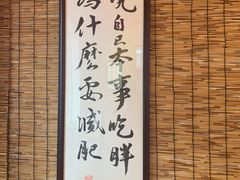 凭自己本事吃胖
為什麼要減肥